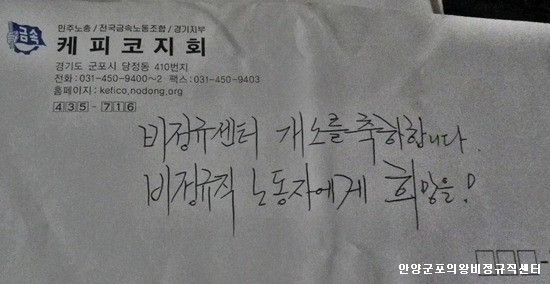 금속
민주노총 / 전국금속노동조합 / 경기지부
케피코지회
경기도 군포시 당정동 410번지
전화 : 031-450-9400~2 팩스 : 031-450-9403
홈페이지 : kefico.nodong.org
435-716
비정규센터 개소를 축하합니다.
비정규직 노동자에게 희망을!
안양군포의왕비정규직센터